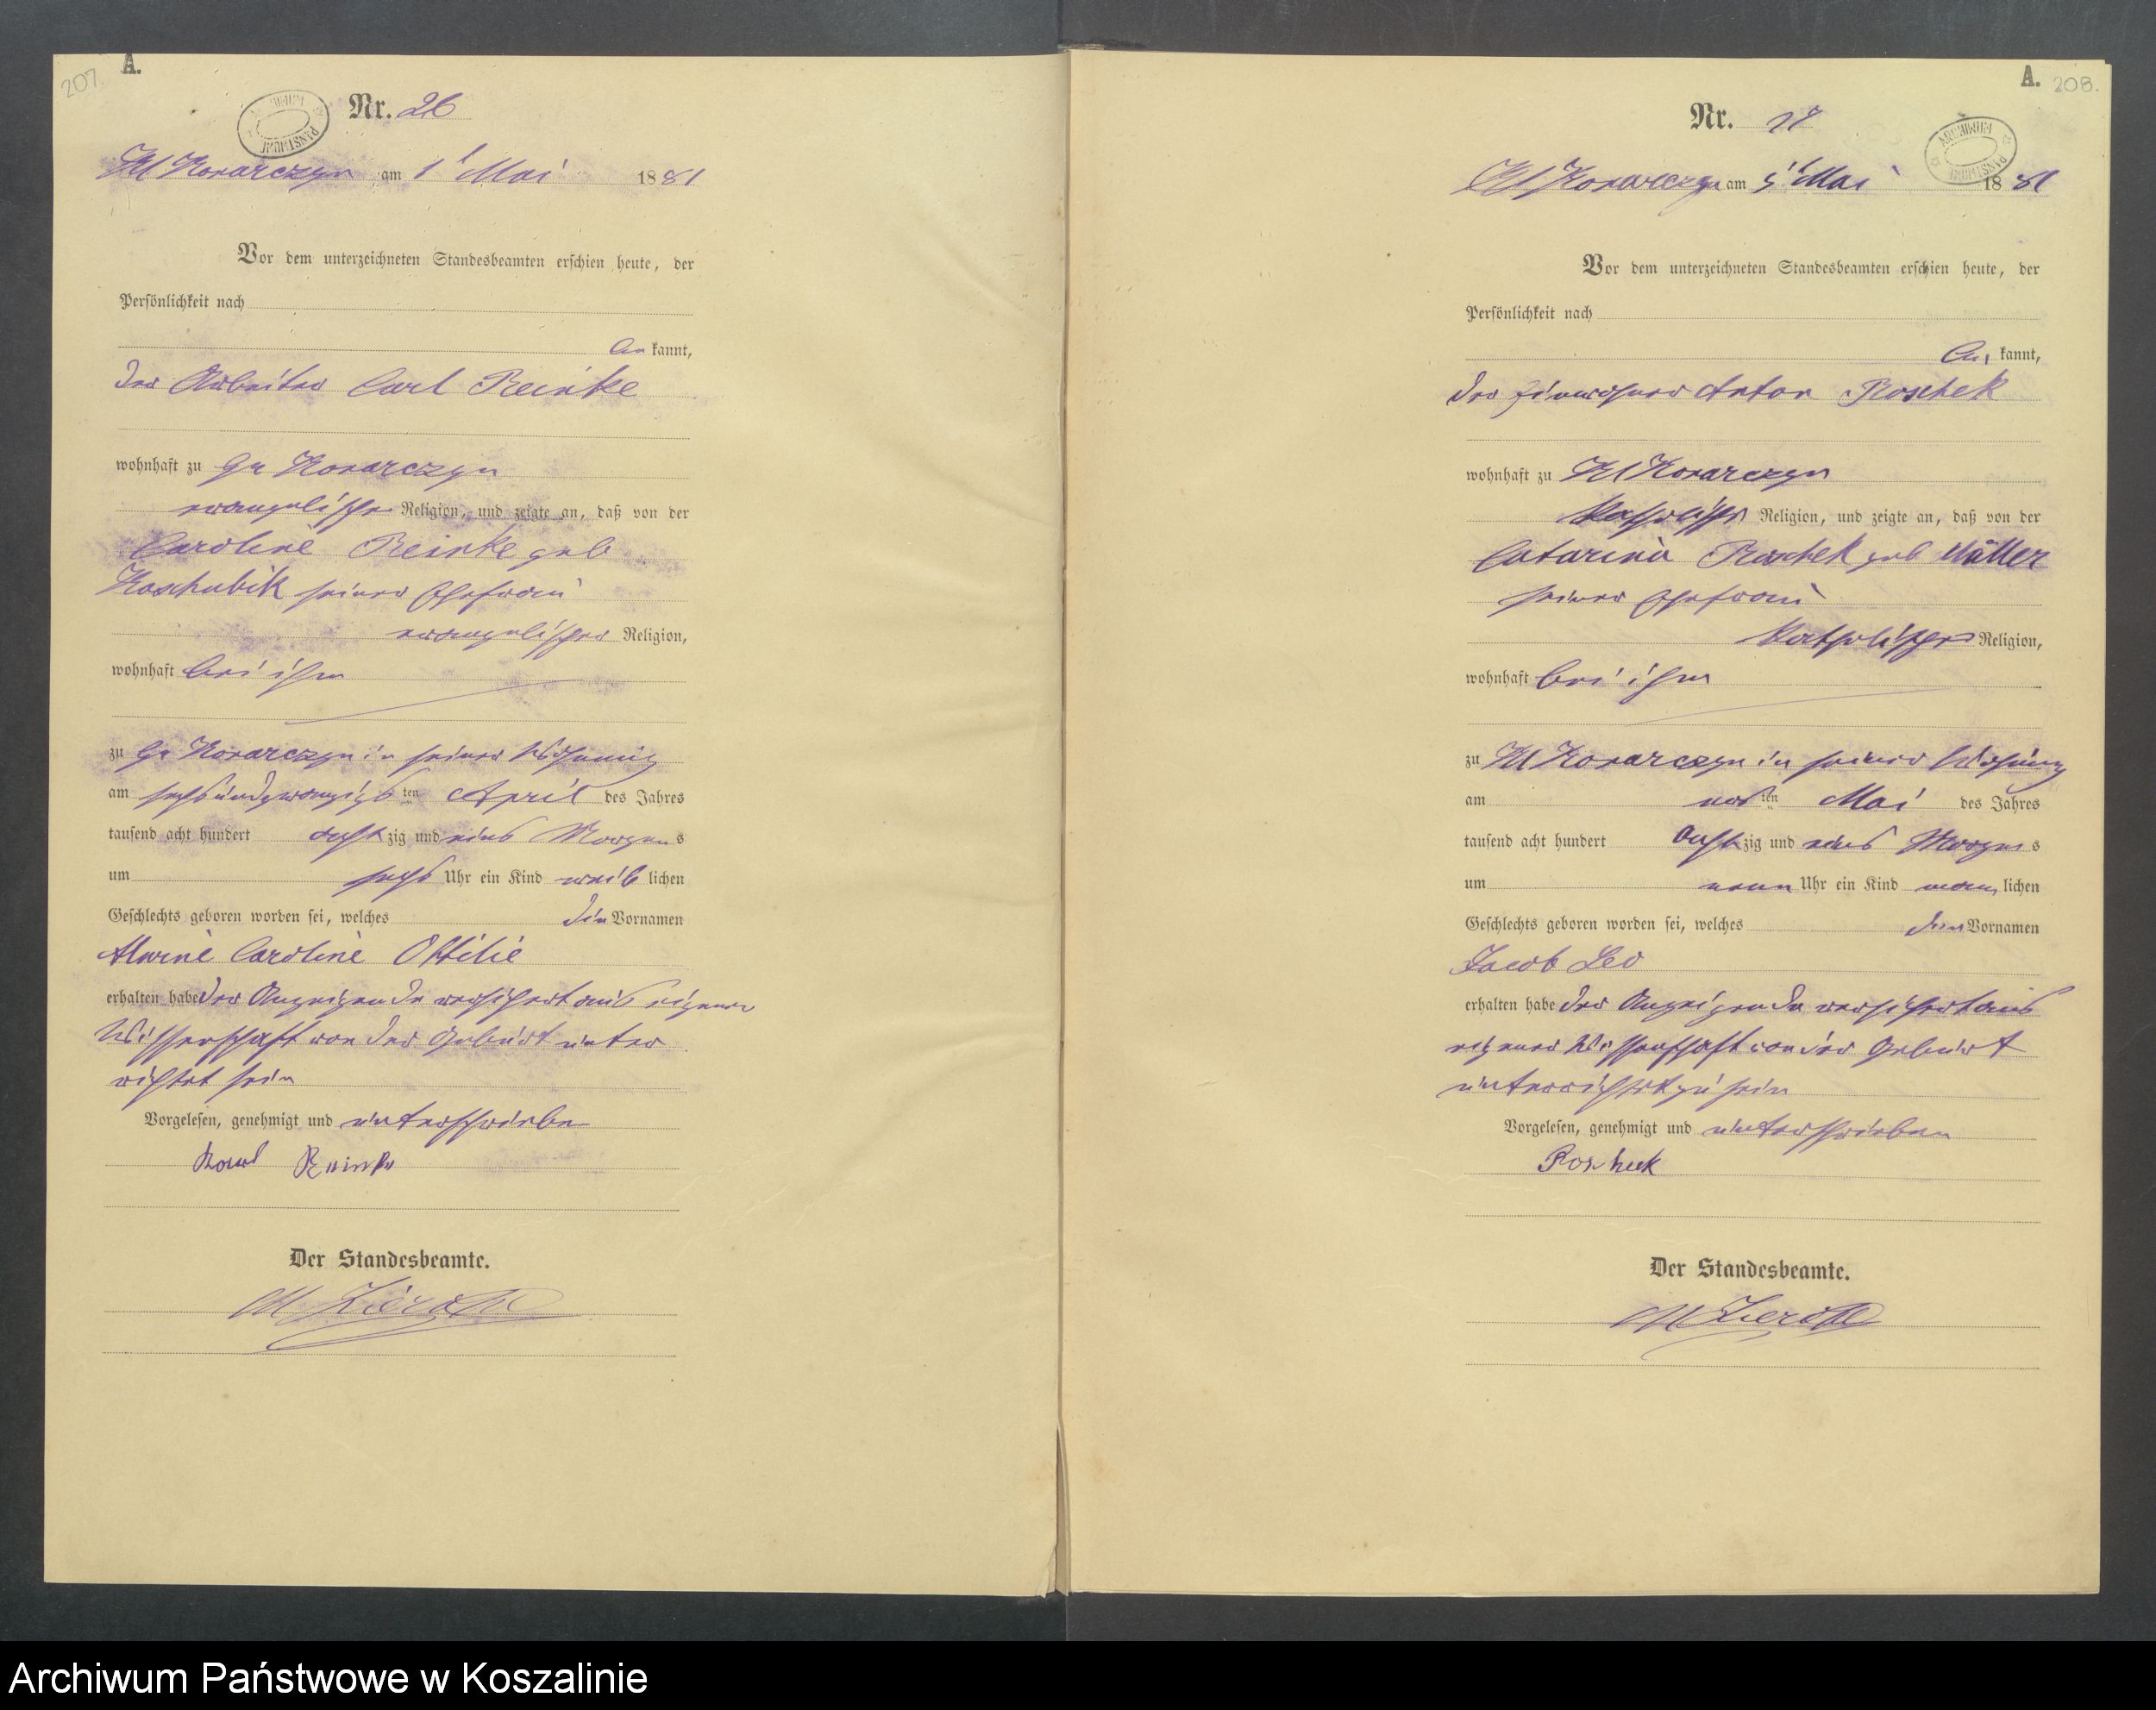 207.
A.
Nr. 26
Kl Konarczyn am 1t Mai 1881
Vor dem unterzeichneten Standesbeamten erschien heute, der
Persönlichkeit nach
be kannt,
der Arbeiter Carl Reinke
wohnhaft zu Gr Konarczyn
evangelischer Religion, und zeigte an, daß von der
Caroline Reinke geb
Koschubik seiner Ehefrau
evangelischer Religion,
wohnhaft bei ihm
zu Gr Konarczyn in seiner Wohnung
am sechsundzwanzigsten April des Jahres
tausend acht hundert achtzig und eins Morgens
um sechs Uhr ein Kind weiblichen
Geschlechts geboren worden sei, welches die Vornamen
Marie Caroline Ottilie
erhalten habe der Anzeigende versichert aus eigener
Wissenschaft von der Geburt unter
richtet sein
Vorgelesen, genehmigt und unterschrieben
Reinke
Der Standesbeamte.
A.
208.
ARCHIWUM PAŃSTWOWE
Nr. 27
Kl Konarczyn am 5t Mai 1881
Vor dem unterzeichneten Standesbeamten erschien heute, der
Persönlichkeit nach
be kannt,
der Einwohner Anton Roschek
wohnhaft zu Kl Konarczyn
katholischer Religion, und zeigte an, daß von der
Catarina Roschek geb Müller
seiner Ehefrau
katholischer Religion,
wohnhaft bei ihm
zu Kl Konarczyn in seiner Wohnung
am ten Mai des Jahres
tausend acht hundert achtzig und eins Morgens
um neun Uhr ein Kind männlichen
Geschlechts geboren worden sei, welches die Vornamen
Jacob Leo
erhalten habe der Anzeigende versichert aus
eigener Wissenschaft von der Geburt
unterrichtet zu sein
Vorgelesen, genehmigt und unterschrieben
Roscheck
Der Standesbeamte.
Archiwum Państwowe w Koszalinie